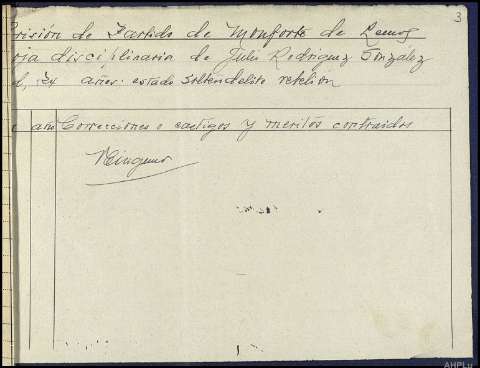 3
Prisión de Partido de Monforte de Lemos
oja disciplinaria de Julio Rodriguez González
d, 24 años. estado Solten delito rebelion
año Correcciones o castigos y meritos contraidos
Ninguno
AHPLu